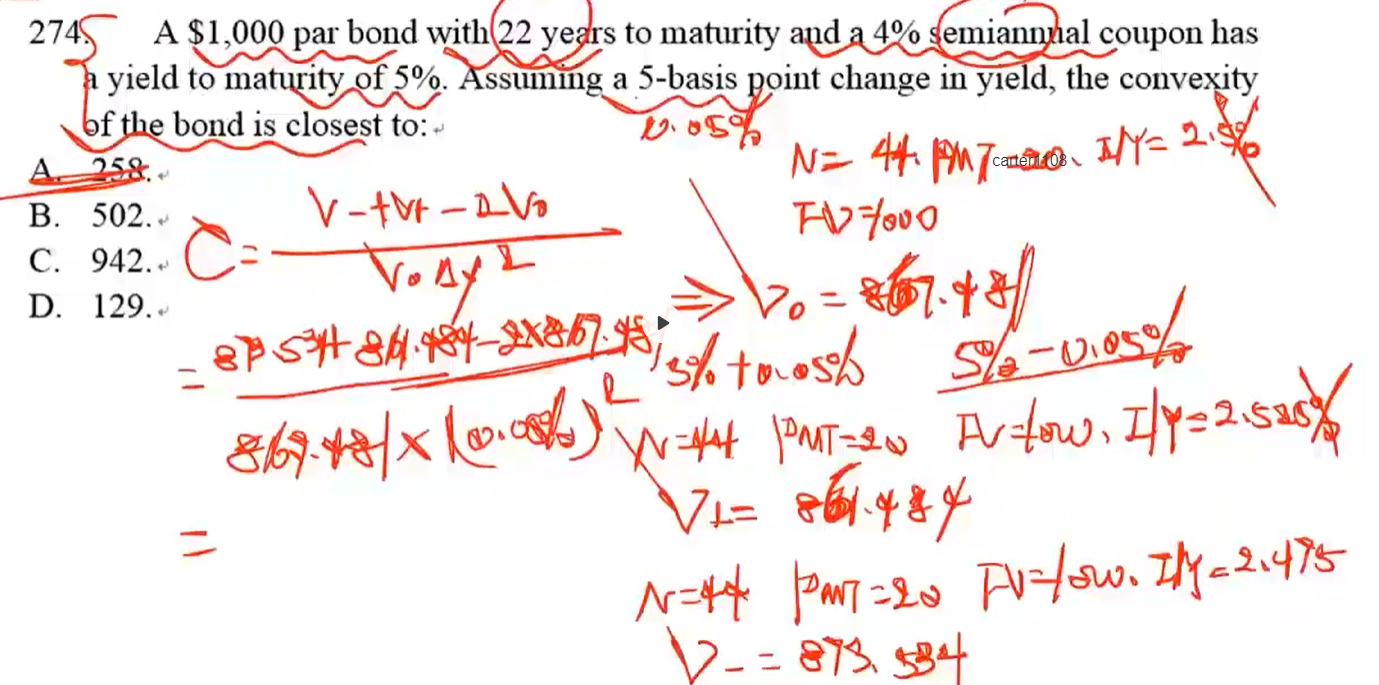 274. A $1,000 par bond with 22 years to maturity and a 4% semiannual coupon has
a yield to maturity of 5%. Assuming a 5-basis point change in yield, the convexity
of the bond is closest to:
0.05%
A. 258.
B. 502.
C. 942.
D. 129.
N= 44. PMT=20、I/Y= 2.5%
carterf108
FV=1000
C = V- + V+ - 2V0
V0 Δy²
⇒ V0 = 867.481
= 873.534+861.484-2×867.481
867.481×(0.05%)²
5%+0.05% 5%-0.05%
N=44 PMT=20 FV=1000、I/Y=2.525%
V+= 861.484
=
N=44 PMT=20 FV=1000、I/Y=2.475
V- = 873.534